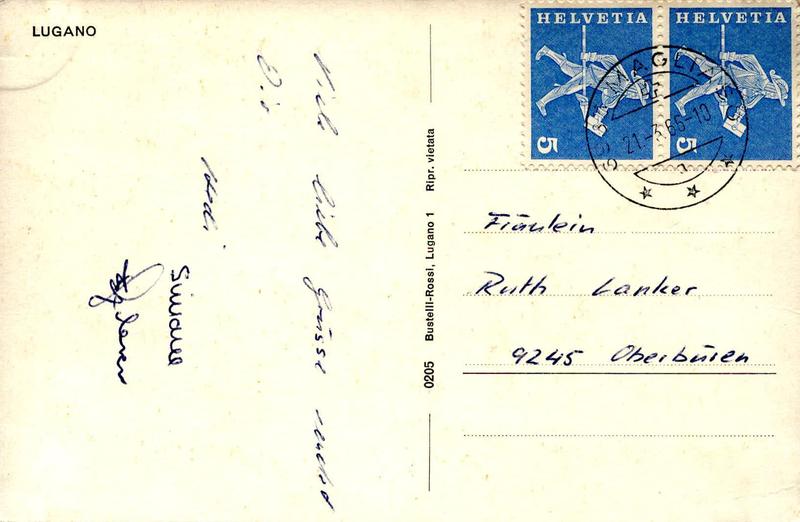 LUGANO
HELVETIA
HELVETIA
5
5
MAGLIASO
21.-3.66-10
Viele liebe Grüsse sendet
Dir
Hedi
0205 Bustelli-Rossi, Lugano 1 Ripr. vietata
Fräulein
Ruth Lanker
9245 Oberbüren